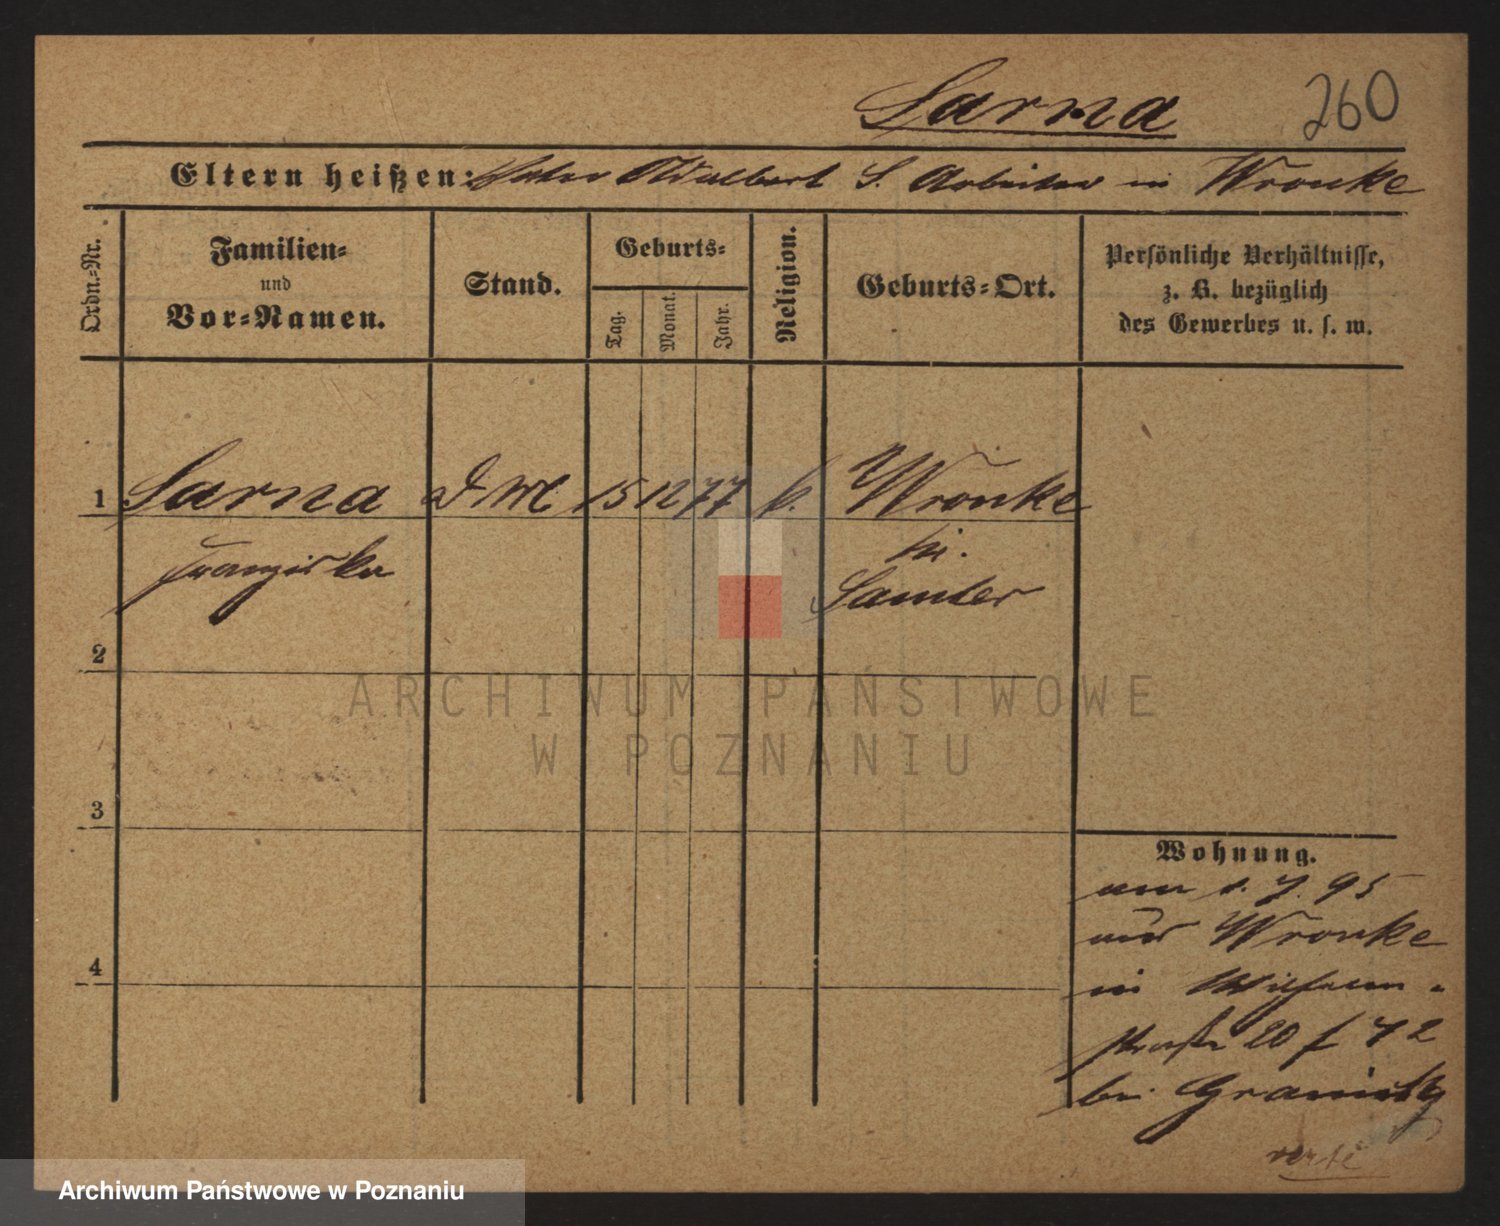 Sarna 260
Eltern heißen: Vater Adalbert S. Arbeiter in Wronke
Ordn.-Nr.
Familien-
und
Vor-Namen.
Stand.
Geburts-
Tag.
Monat.
Jahr.
Religion.
Geburts-Ort.
Persönliche Verhältnisse,
z. B. bezüglich
des Gewerbes u. s. w.
1 Sarna 15 12 77 k. Wronke
Franziska
Kr.
Samter
2
3
4
Wohnung.
am 1. 7. 95
aus Wronke
in Wilhelm-
straße 20
bei
verte
ARCHIWUM PAŃSTWOWE
W POZNANIU
Archiwum Państwowe w Poznaniu